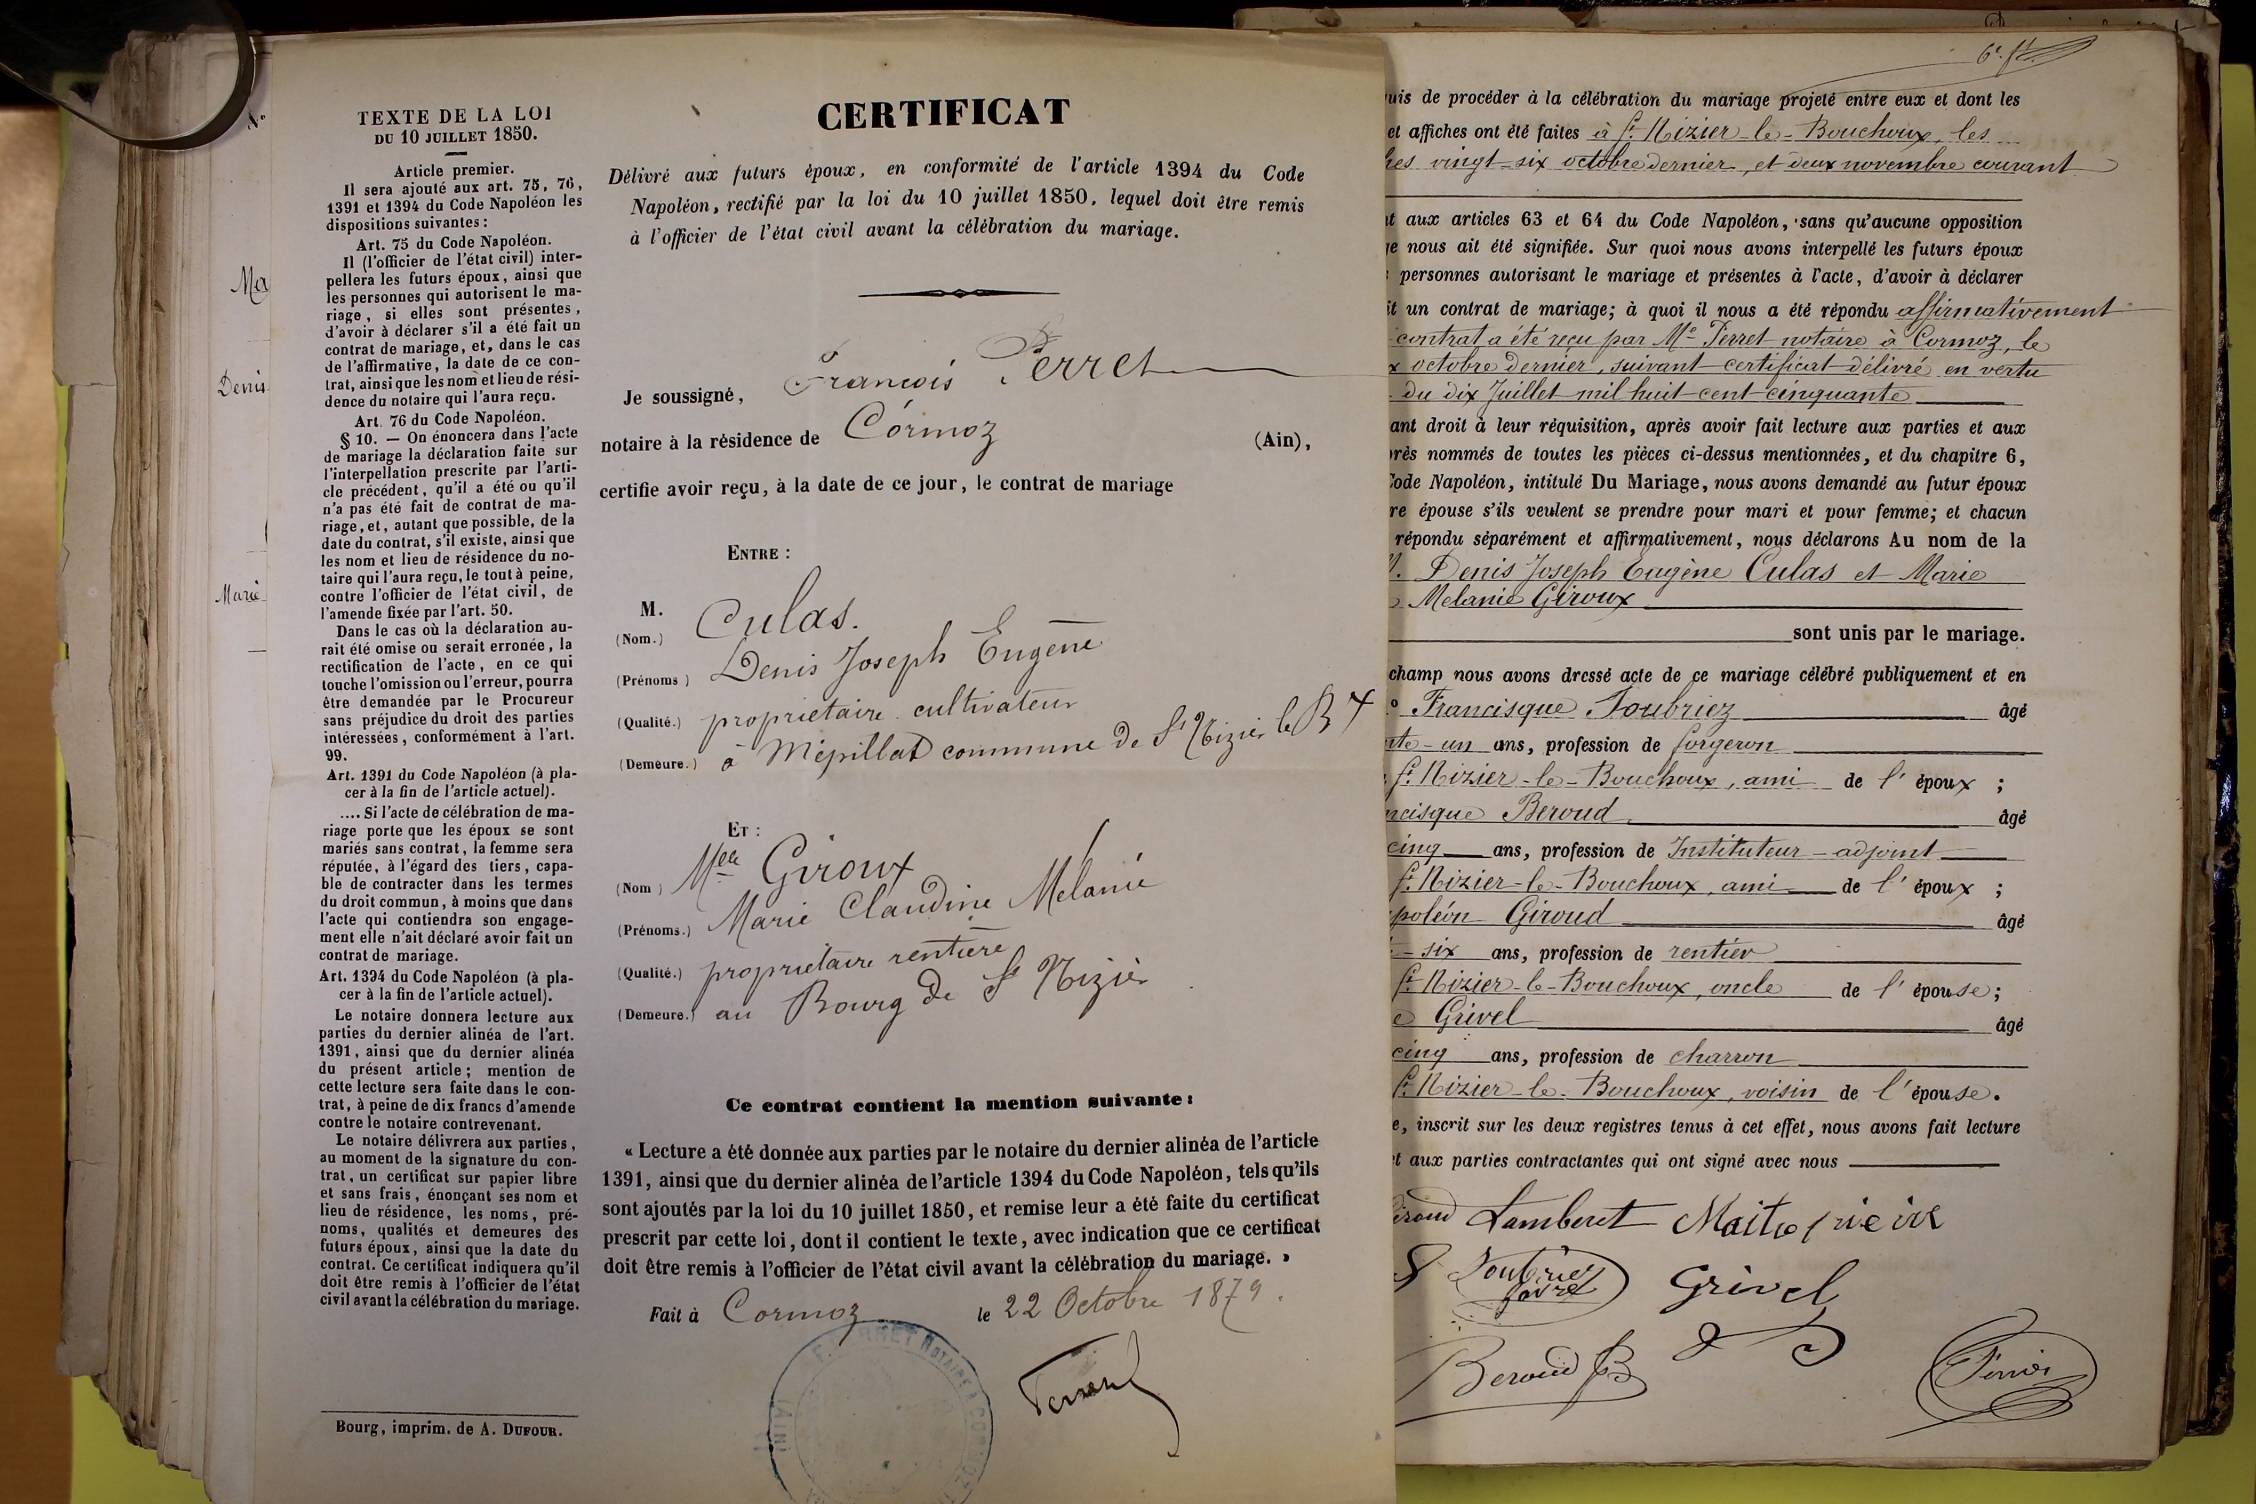 N°
Ma
Denis
Marie
TEXTE DE LA LOI
DU 10 JUILLET 1850.
Article premier.
Il sera ajouté aux art. 75, 76,
1391 et 1394 du Code Napoléon les
dispositions suivantes :
Art. 75 du Code Napoléon.
Il (l'officier de l'état civil) inter-
pellera les futurs époux, ainsi que
les personnes qui autorisent le ma-
riage, si elles sont présentes,
d'avoir à déclarer s'il a été fait un
contrat de mariage, et, dans le cas
de l'affirmative, la date de ce con-
trat, ainsi que les nom et lieu de rési-
dence du notaire qui l'aura reçu.
Art. 76 du Code Napoléon.
§ 10. — On énoncera dans l'acte
de mariage la déclaration faite sur
l'interpellation prescrite par l'arti-
cle précédent, qu'il a été ou qu'il
n'a pas été fait de contrat de ma-
riage, et, autant que possible, de la
date du contrat, s'il existe, ainsi que
les nom et lieu de résidence du no-
taire qui l'aura reçu, le tout à peine,
contre l'officier de l'état civil, de
l'amende fixée par l'art. 50.
Dans le cas où la déclaration au-
rait été omise ou serait erronée, la
rectification de l'acte, en ce qui
touche l'omission ou l'erreur, pourra
être demandée par le Procureur
sans préjudice du droit des parties
intéressées, conformément à l'art.
99.
Art. 1391 du Code Napoléon (à pla-
cer à la fin de l'article actuel).
.... Si l'acte de célébration de ma-
riage porte que les époux se sont
mariés sans contrat, la femme sera
réputée, à l'égard des tiers, capa-
ble de contracter dans les termes
du droit commun, à moins que dans
l'acte qui contiendra son engage-
ment elle n'ait déclaré avoir fait un
contrat de mariage.
Art. 1394 du Code Napoléon (à pla-
cer à la fin de l'article actuel).
Le notaire donnera lecture aux
parties du dernier alinéa de l'art.
1391, ainsi que du dernier alinéa
du présent article ; mention de
cette lecture sera faite dans le con-
trat, à peine de dix francs d'amende
contre le notaire contrevenant.
Le notaire délivrera aux parties,
au moment de la signature du con-
trat, un certificat sur papier libre
et sans frais, énonçant ses nom et
lieu de résidence, les noms, pré-
noms, qualités et demeures des
futurs époux, ainsi que la date du
contrat. Ce certificat indiquera qu'il
doit être remis à l'officier de l'état
civil avant la célébration du mariage.
Bourg, imprim. de A. DUFOUR.
CERTIFICAT
Délivré aux futurs époux, en conformité de l'article 1394 du Code
Napoléon, rectifié par la loi du 10 juillet 1850, lequel doit être remis
à l'officier de l'état civil avant la célébration du mariage.
Je soussigné, François Perret
notaire à la résidence de Cormoz (Ain),
certifie avoir reçu, à la date de ce jour, le contrat de mariage
ENTRE :
M.
(Nom.) Culas.
(Prénoms) Denis Joseph Eugène
(Qualité.) propriétaire cultivateur
(Demeure.) à Mépillat commune de St Nizier le Bx
ET :
(Nom) Melle Giroux
(Prénoms.) Marie Claudine Mélanie
(Qualité.) propriétaire rentière
(Demeure.) au Bourg de St Nizier
Ce contrat contient la mention suivante :
« Lecture a été donnée aux parties par le notaire du dernier alinéa de l'article
1391, ainsi que du dernier alinéa de l'article 1394 du Code Napoléon, tels qu'ils
sont ajoutés par la loi du 10 juillet 1850, et remise leur a été faite du certificat
prescrit par cette loi, dont il contient le texte, avec indication que ce certificat
doit être remis à l'officier de l'état civil avant la célébration du mariage. »
Fait à Cormoz le 22 Octobre 1879.
NOTAIRE À
(AIN)
uis de procéder à la célébration du mariage projeté entre eux et dont les
et affiches ont été faites à St Nizier-le-Bouchoux, les
hes vingt-six octobre dernier, et deux novembre courant
t aux articles 63 et 64 du Code Napoléon, sans qu'aucune opposition
ge nous ait été signifiée. Sur quoi nous avons interpellé les futurs époux
personnes autorisant le mariage et présentes à l'acte, d'avoir à déclarer
it un contrat de mariage; à quoi il nous a été répondu affirmativement
contrat a été reçu par Me Perret notaire à Cormoz, le
x octobre dernier, suivant certificat délivré en vertu
du dix Juillet mil huit cent cinquante
ant droit à leur réquisition, après avoir fait lecture aux parties et aux
rès nommés de toutes les pièces ci-dessus mentionnées, et du chapitre 6,
Code Napoléon, intitulé Du Mariage, nous avons demandé au futur époux
re épouse s'ils veulent se prendre pour mari et pour femme; et chacun
répondu séparément et affirmativement, nous déclarons Au nom de la
M. Denis Joseph Eugène Culas et Marie
Mélanie Giroux
sont unis par le mariage.
champ nous avons dressé acte de ce mariage célébré publiquement et en
Francisque Soubriez âgé
te-un ans, profession de forgeron
St Nizier-le-Bouchoux, ami de l'époux ;
ncisque Beroud âgé
cinq ans, profession de Instituteur-adjoint
St Nizier-le-Bouchoux, ami de l'époux ;
poléon Giroud âgé
-six ans, profession de rentier
St Nizier-le-Bouchoux, oncle de l'épouse;
e Grivel âgé
cinq ans, profession de charron
St Nizier-le-Bouchoux, voisin de l'épouse.
e, inscrit sur les deux registres tenus à cet effet, nous avons fait lecture
t aux parties contractantes qui ont signé avec nous
Lamberet
Grivel
Beroud